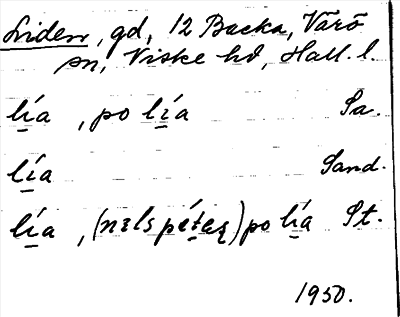 Liden, gd, 12 Backa, Värö
sn, Viske hd, Hall. l.
lí̱a , po lí̱a Sa.
lí̱a Sand.
lí̱a , (nɛls pét̠aʀ) po lí̱a St.
1950.